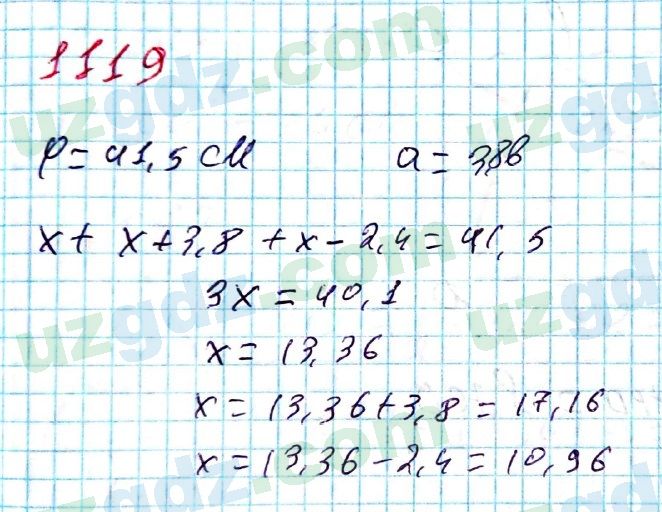 1119
P = 41,5 см a = 3,8в
x + x + 3,8 + x - 2,4 = 41,5
3x = 40,1
x = 13,36
x = 13,36 + 3,8 = 17,16
x = 13,36 - 2,4 = 10,96
uzgdz.com